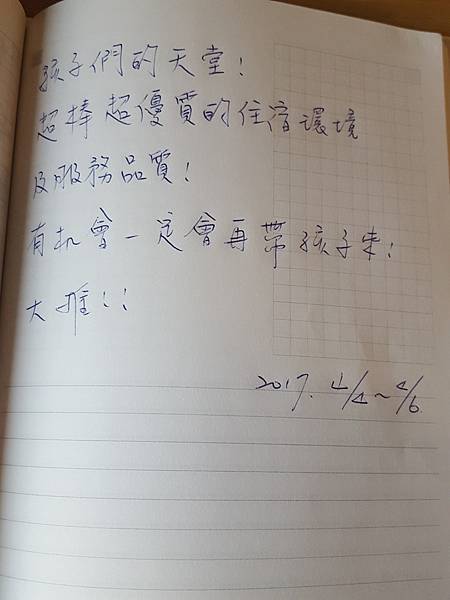 孩子們的天堂!
超棒超優質的住宿環境
及服務品質!
有机會一定會再帶孩子來!
大推!!
2017. 4/4~4/6.